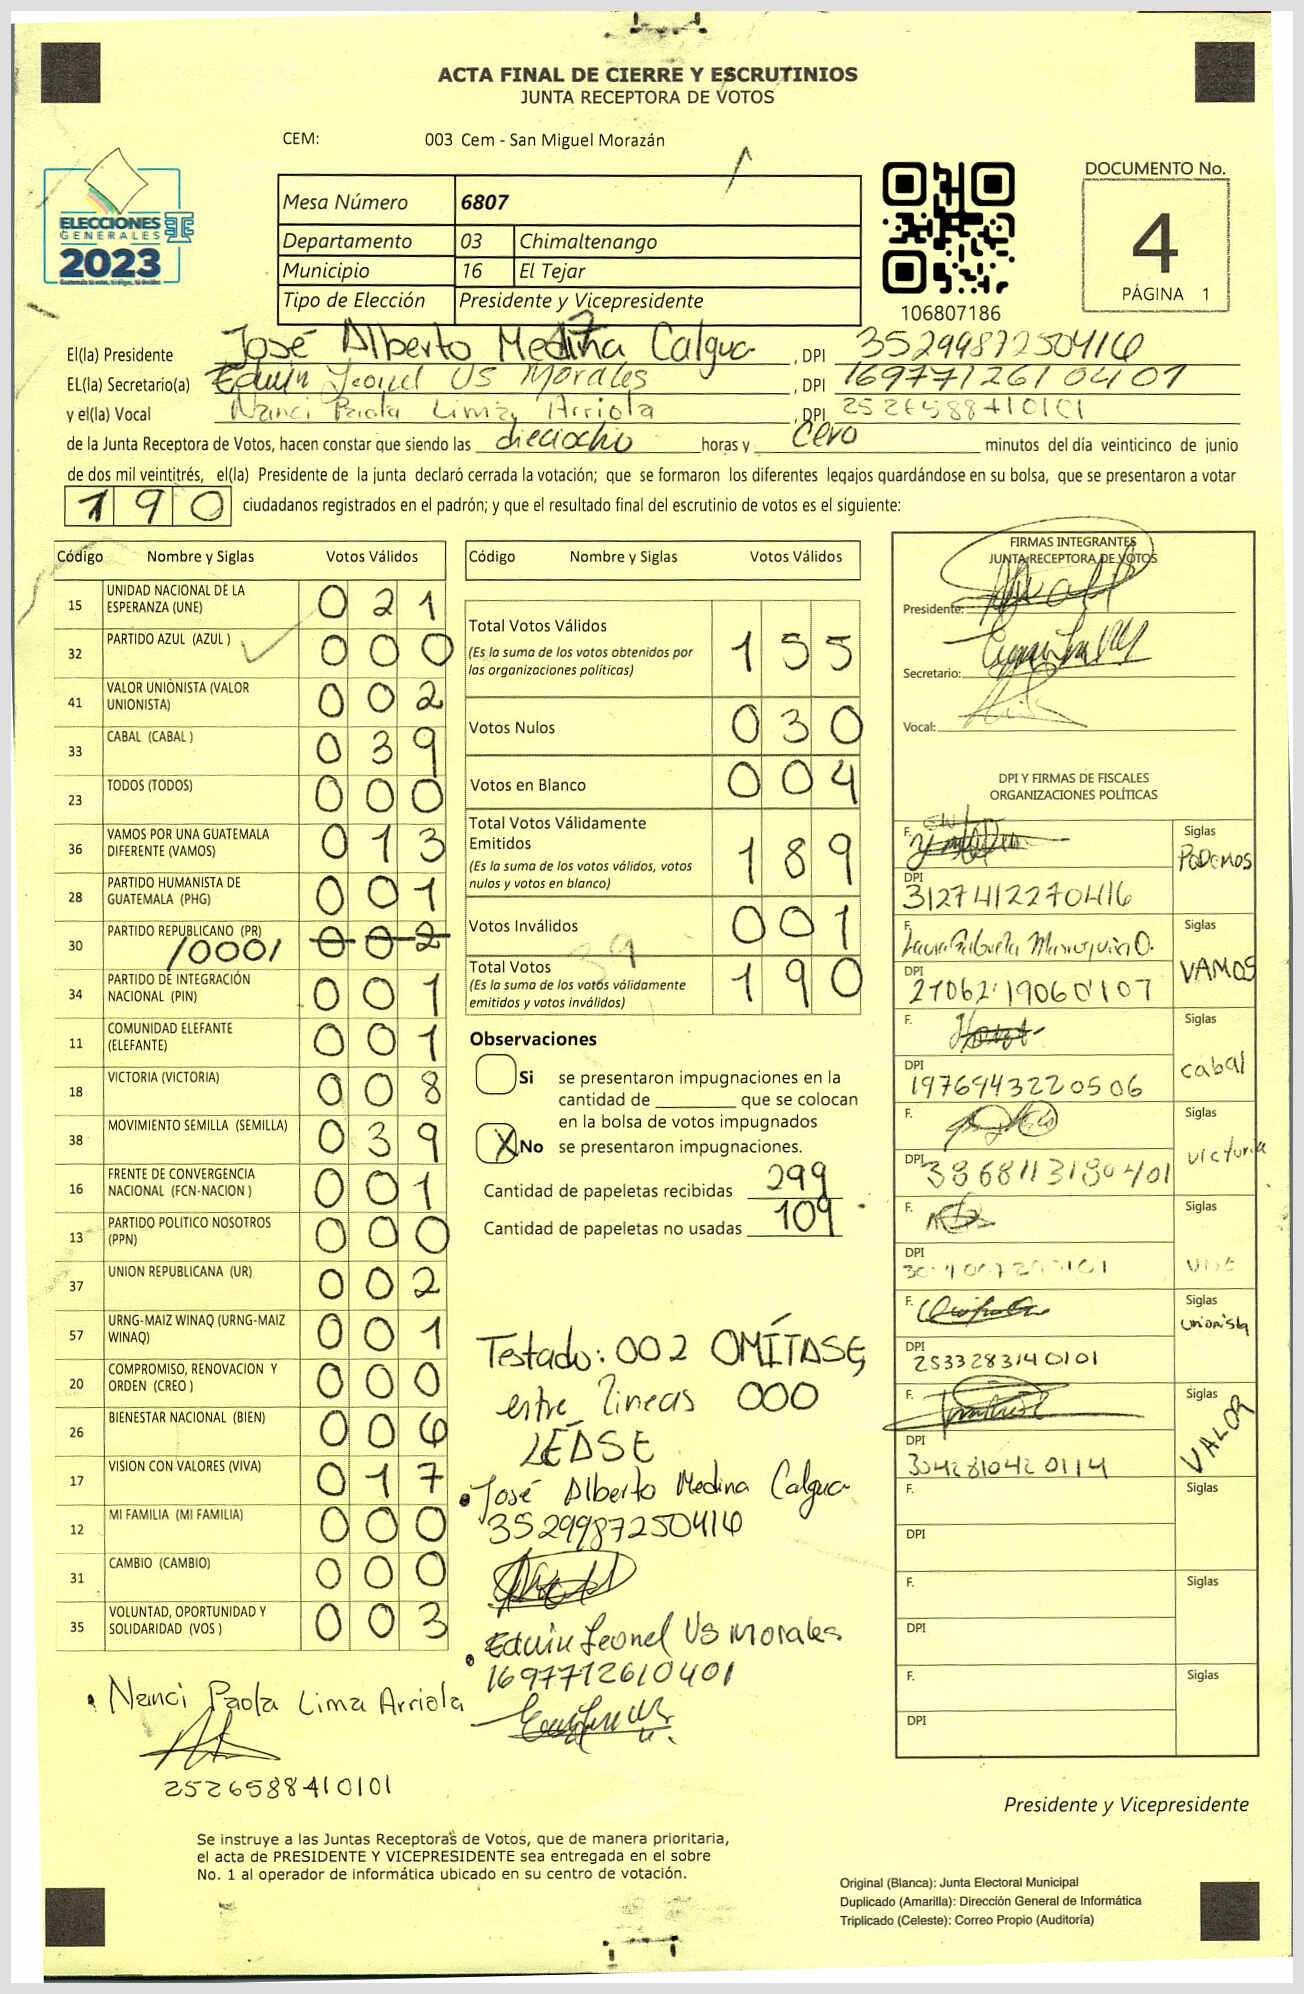 ACTA FINAL DE CIERRE Y ESCRUTINIOS
JUNTA RECEPTORA DE VOTOS
CEM: 003 Cem - San Miguel Morazán
ELECCIONES
GENERALES
2023
Mesa Número 6807
Departamento 03 Chimaltenango
Municipio 16 El Tejar
Tipo de Elección Presidente y Vicepresidente
106807186
DOCUMENTO No.
4
PÁGINA 1
El(la) Presidente José Alberto Medina Calgua , DPI 3529987250416
EL(la) Secretario(a) Edwin Leonel Us Morales , DPI 1697712610401
y el(la) Vocal Nanci Paola Lima Arriola , DPI 2526588410101
de la Junta Receptora de Votos, hacen constar que siendo las dieciocho horas y cero minutos del día veinticinco de junio
de dos mil veintitrés, el(la) Presidente de la junta declaró cerrada la votación; que se formaron los diferentes legajos guardándose en su bolsa, que se presentaron a votar
190 ciudadanos registrados en el padrón; y que el resultado final del escrutinio de votos es el siguiente:
Código Nombre y Siglas Votos Válidos
15 UNIDAD NACIONAL DE LA ESPERANZA (UNE) 021
32 PARTIDO AZUL (AZUL ) 000
41 VALOR UNIONISTA (VALOR UNIONISTA) 002
33 CABAL (CABAL ) 039
23 TODOS (TODOS) 000
36 VAMOS POR UNA GUATEMALA DIFERENTE (VAMOS) 013
28 PARTIDO HUMANISTA DE GUATEMALA (PHG) 001
30 PARTIDO REPUBLICANO (PR) /000/ 002
34 PARTIDO DE INTEGRACIÓN NACIONAL (PIN) 001
11 COMUNIDAD ELEFANTE (ELEFANTE) 001
18 VICTORIA (VICTORIA) 008
38 MOVIMIENTO SEMILLA (SEMILLA) 039
16 FRENTE DE CONVERGENCIA NACIONAL (FCN-NACION ) 001
13 PARTIDO POLITICO NOSOTROS (PPN) 000
37 UNION REPUBLICANA (UR) 002
57 URNG-MAIZ WINAQ (URNG-MAIZ WINAQ) 001
20 COMPROMISO, RENOVACION Y ORDEN (CREO ) 000
26 BIENESTAR NACIONAL (BIEN) 006
17 VISION CON VALORES (VIVA) 017
12 MI FAMILIA (MI FAMILIA) 000
31 CAMBIO (CAMBIO) 000
35 VOLUNTAD, OPORTUNIDAD Y SOLIDARIDAD (VOS ) 003
Nanci Paola Lima Arriola
2526588410101
Código Nombre y Siglas Votos Válidos
Total Votos Válidos 155
(Es la suma de los votos obtenidos por
las organizaciones políticas)
Votos Nulos 030
Votos en Blanco 004
Total Votos Válidamente
Emitidos 189
(Es la suma de los votos válidos, votos
nulos y votos en blanco)
Votos Inválidos 001
39
Total Votos 190
(Es la suma de los votos válidamente
emitidos y votos inválidos)
Observaciones
Si se presentaron impugnaciones en la
cantidad de ________ que se colocan
en la bolsa de votos impugnados
X No se presentaron impugnaciones.
Cantidad de papeletas recibidas 299
Cantidad de papeletas no usadas 109
Testado: 002 OMÍTASE,
entre lineas 000
LÉASE
José Alberto Medina Calgua
3529987250416
Edwin Leonel Us Morales
1697712610401
FIRMAS INTEGRANTES
JUNTA RECEPTORA DE VOTOS
Presidente:
Secretario:
Vocal:
DPI Y FIRMAS DE FISCALES
ORGANIZACIONES POLÍTICAS
F. Siglas
PODEMOS
DPI
3127412270416
F. Siglas
VAMOS
DPI
F. Siglas
cabal
DPI
1976943220506
F. Siglas
victoria
DPI
3868113180401
F. Siglas
DPI
F. Siglas
unionista
DPI
2533283140101
F. Siglas
VALOR
DPI
3042810420114
F. Siglas
DPI
F. Siglas
DPI
F. Siglas
DPI
Presidente y Vicepresidente
Se instruye a las Juntas Receptoras de Votos, que de manera prioritaria,
el acta de PRESIDENTE Y VICEPRESIDENTE sea entregada en el sobre
No. 1 al operador de informática ubicado en su centro de votación.
Original (Blanca): Junta Electoral Municipal
Duplicado (Amarilla): Dirección General de Informática
Triplicado (Celeste): Correo Propio (Auditoría)